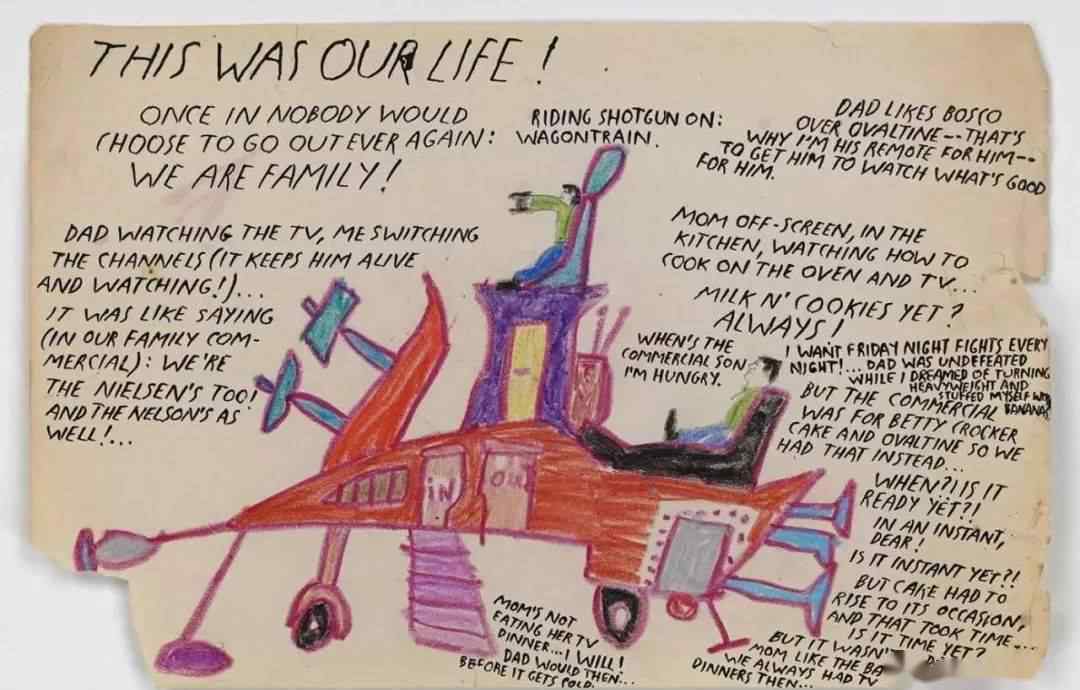 THIS WAS OUR LIFE!
ONCE IN NOBODY WOULD
CHOOSE TO GO OUT EVER AGAIN:
WE ARE FAMILY!
DAD WATCHING THE TV, ME SWITCHING
THE CHANNELS (IT KEEPS HIM ALIVE
AND WATCHING!)...
IT WAS LIKE SAYING
(IN OUR FAMILY COM-
MERCIAL): WE'RE
THE NIELSEN'S TOO!
AND THE NELSON'S AS
WELL!...
RIDING SHOTGUN ON:
WAGONTRAIN.
DAD LIKES BOSCO
OVER OVALTINE--THAT'S
WHY I'M HIS REMOTE FOR HIM--
TO GET HIM TO WATCH WHAT'S GOOD
FOR HIM.
MOM OFF-SCREEN, IN THE
KITCHEN, WATCHING HOW TO
COOK ON THE OVEN AND TV...
MILK N' COOKIES YET?
ALWAYS!
WHEN'S THE
COMMERCIAL SON,
I'M HUNGRY.
I WANT FRIDAY NIGHT FIGHTS EVERY
NIGHT!... DAD WAS UNDEFEATED
WHILE I DREAMED OF TURNING
HEAVYWEIGHT AND
STUFFED MYSELF WITH
BANANAS
BUT THE COMMERCIAL
WAS FOR BETTY CROCKER
CAKE AND OVALTINE SO WE
HAD THAT INSTEAD...
WHEN?! IS IT
READY YET?!
IN AN INSTANT,
DEAR!
IS IT INSTANT YET?!
BUT CAKE HAD TO
RISE TO ITS OCCASION,
AND THAT TOOK TIME....
IS IT TIME YET?
BUT IT WASN'T
MOM LIKE THE
WE ALWAYS HAD TV
DINNERS THEN...
IN
OU
MOM'S NOT
EATING HER TV
DINNER...I WILL!
DAD WOULD THEN...
BEFORE IT GETS COLD.